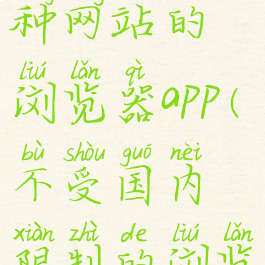 种网站的
liú lǎn qì
浏览器app(
bù shòu guó nèi
不受国内
xiàn zhì de liú lǎn
限制的浏览